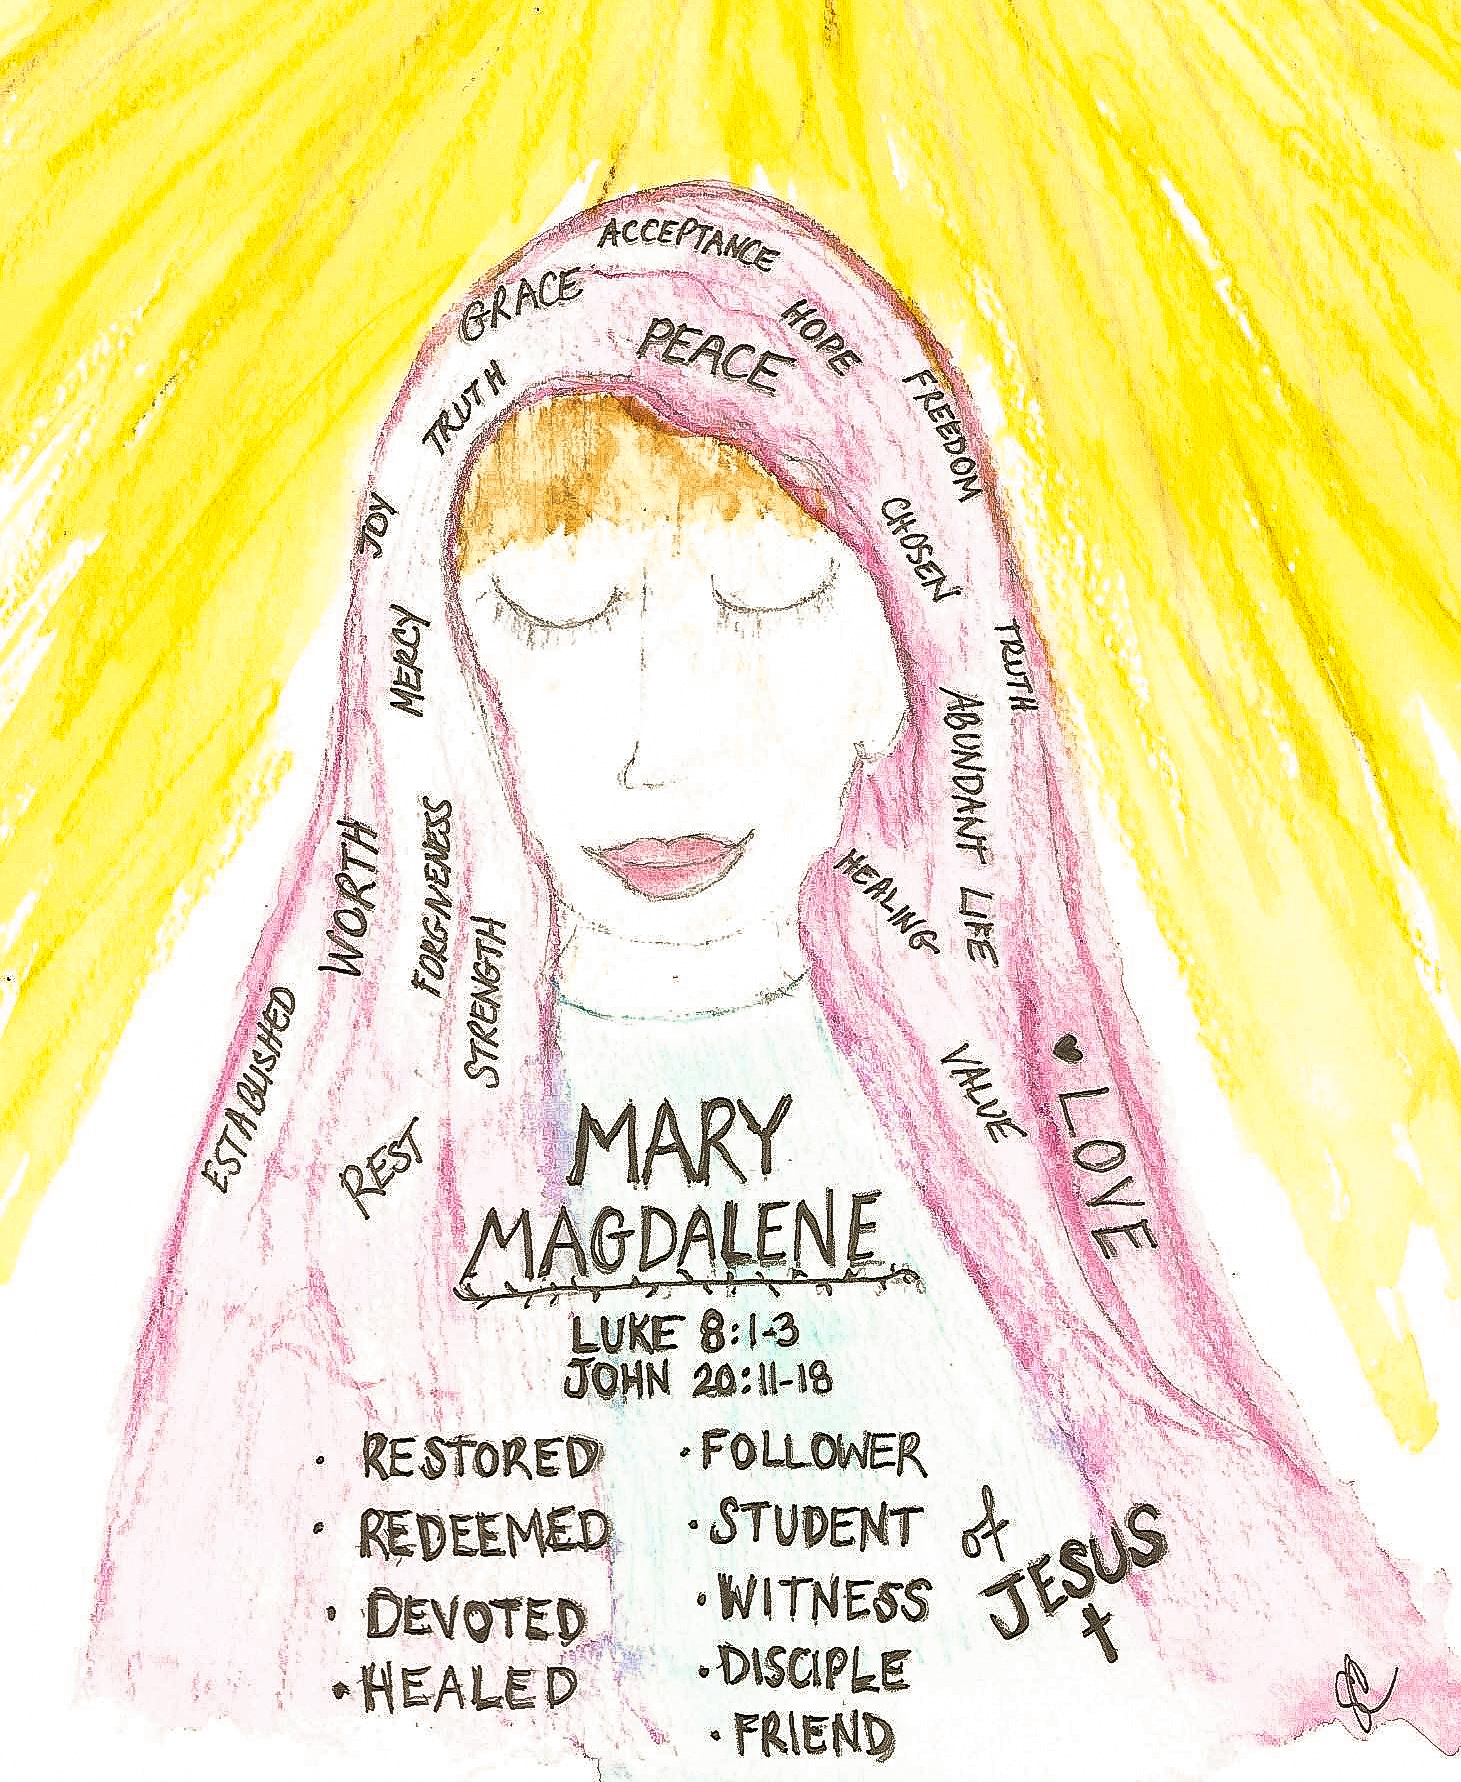 ACCEPTANCE
GRACE
HOPE
PEACE
TRUTH
FREEDOM
JOY
CHOSEN
MERCY
TRUTH
ABUNDANT LIFE
WORTH
FORGIVENESS
HEALING
STRENGTH
ESTABLISHED
VALUE
♥ LOVE
REST
MARY
MAGDALENE
LUKE 8:1-3
JOHN 20:11-18
• RESTORED
• REDEEMED
• DEVOTED
• HEALED
• FOLLOWER
• STUDENT
• WITNESS
• DISCIPLE
• FRIEND
of
JESUS